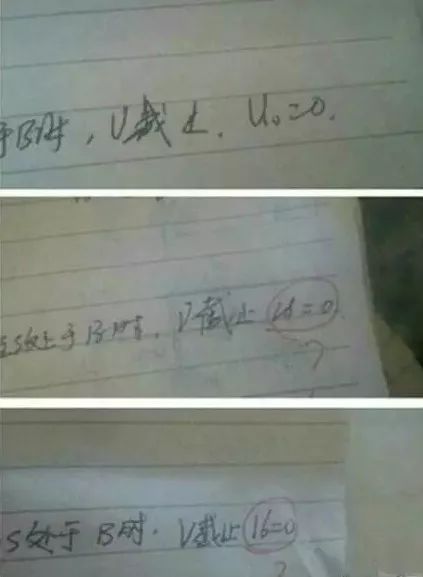 于B时，V截止．U₀=0．
当S处于B时．V截止 U6=0．
?
S处于B时．V截止 16=0
?